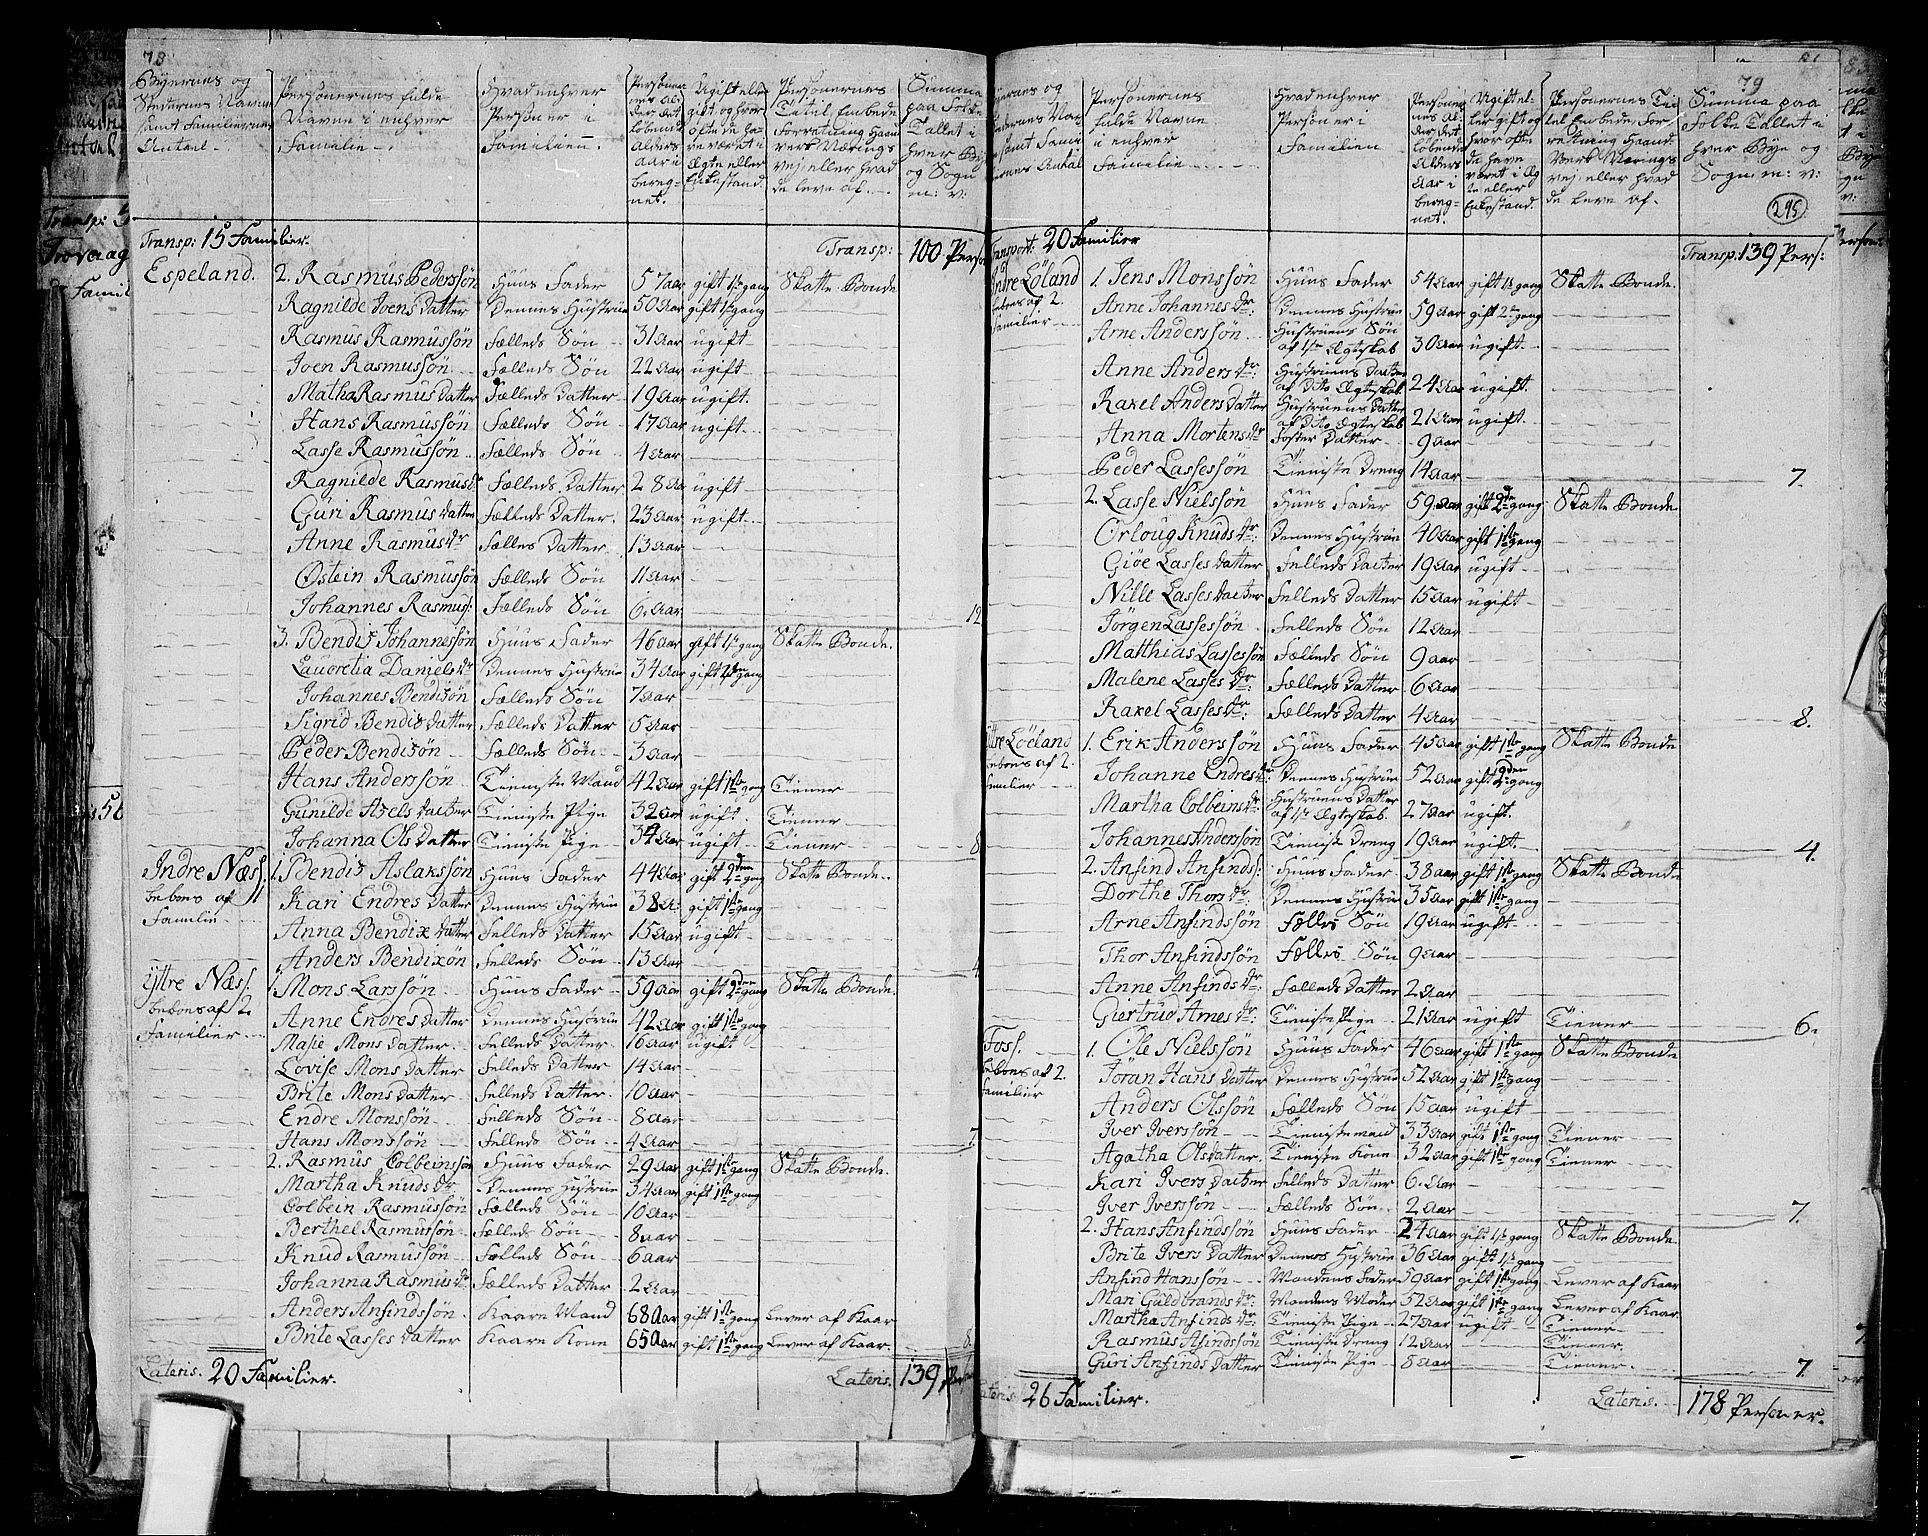 78
Byernes og Stedernes Navne samt Familiernes Antal.
Personernes fulde Navne i enhver Familie.
Hvad enhver Personer i Familien.
Personernes Alder det løbende Alders Aar i beregnet.
Ugift eller gift, og hvor ofte de have været i Ægte eller Enkestand.
Personernes Titel, Embede Forretning, Haandverk Nærings vej eller hvad de leve af.
Summa paa Folke Tallet i hver Bye og Sogn m: v:
Transp: 15 Familier. Transp: 100 Perso
Espeland. 2. Rasmus Pederssøn Huus Fader 57 aar gift 1ste gang Skatte Bonde
Ragnilde Joens Datter Dennes Hustrue 50 Aar gift 1ste gang
Rasmus Rasmussøn Fælleds Søn 31 Aar ugift
Joen Rasmussøn Fælleds Søn 22 Aar ugift
Matha Rasmus Datter Fælleds Datter 19 Aar ugift.
Hans Rasmussøn Fælleds Søn 17 Aar ugift
Lasse Rasmussøn Fælleds Søn 4 Aar
Ragnilde Rasmus Dr Fælleds Datter 28 Aar ugift
Guri Rasmus Datter Fælleds Datter. 23 Aar ugift
Anne Rasmus Dr Fælles Datter 13 Aar
Østein Rasmussøn Fælleds Søn 11 Aar
Johannes Rasmus: Fælleds Søn 6. Aar 12
3. Bendix Johannessøn Huus Fader 46 Aar gift 1ste gang Skatte Bonde.
Lavoretia Daniels Dr Dennes Hustrue 34 Aar gift gang
Johannes Bendixøn Fælleds Søn 7 Aar
Sigrid Bendix Datter Fælleds Datter 5 Aar
Peder Bendixøn Fælleds Søn 3 Aar
Hans Anderssøn Tieniste Mand 42 Aar gift 1ste gang Tiener
Gunilde Axels Datter Tieniste Pige 32 Aar ugift. Tiener
Johanna Ols Datter Tieniste Pige 34 Aar ugift Tiener 8
Indre Næs. 1. Bendix Aslakssøn Huus Fader 44 Aar gift 2den gang Skatte Bonde
bebones af 1 Kari Endres Datter Dennes Hustrue 38 A: gift 1ste gang
Familie Anna Bendix Datter Felleds Datter 15 Aar ugift
Anders Bendixøn Felleds Søn 13 Aar 4
Ystre Næs. 1. Mons Larssøn Huus Fader 59 Aar gift 2den gang Skatte Bonde.
bebones af 2 Anne Endres Datter Dennes Hustrue 42 Aar gift 1ste gang
Familier Masie Mons Datter Felleds Datter 16 Aar ugift
Lovise Mons Datter Felleds Datter 14 Aar
Brite Mons Datter Felleds Datter. 10 Aar
Endre Monssøn Felleds Søn 8 Aar
Hans Monssøn Felleds Søn 4 Aar 7.
2. Rasmus Colbeinssøn Huus Fader 29 Aar gift 1ste gang Skatte Bonde.
Martha Knuds Dr Dennes Hustrue 34 Aar gift 1ste gang
Colbein Rasmussøn Fælleds Søn 10 Aar
Berthel Rasmussøn Fælleds Søn 8 aar
Knud Rasmussøn Fælleds Søn 6 aar
Johanna Rasmus Dr Fælleds Datter 2 Aar
Anders Ansindssøn. Kaare Mand 68 Aar gift 1ste gang Lever af Kaar
Brite Lasses Datter Kaare Kone 65 Aar gift 1ste gang Lever af Kaar. 8.
Lateris. 20 Familier. Lateris. 139
79
Personernes fulde Navne i enhver Familie
Hvad enhver Personer i Familien
Personernes Alder det løbende Alders Aar i beregnet.
Ugift eller gift og hvor ofte de have været i Ægte eller Enkestand.
Personernes Titel Embede, Forretning Haandverk Nærings vej eller hvad de leve af.
Summa paa Folke Tallet i hver Bye og Sogn, m: v:
295
Transport: 20 Familier Transp: 139 Pers:
Indre Löland 1. Jens Monssøn Huus Fader 54 Aar gift 1ste gang Skatte Bonde.
bebones af 2. Anne Johannes Dr: Dennes Hustrue 59 Aar gift 2 gang
Familier Arne Anderssøn Hustruens Søn af 1ste Ægteskab 30 Aar ugift
Anne Anders Dr: Hustruens Datter af dito Ægteskab 24 Aar ugift.
Raxel Anders Datter Hustruens Datter af dito Ægteskab 21 Aar ugift
Anna Mortens Dr Foster Datter 9 Aar
Peder Lassessøn Tieniste Dreng 14 Aar 7.
2. Lasse Nielssøn Huus Fader 59. Aar gift 2den gang Skatte Bonde
Orloug Knuds Dr: Dennes Hustrue 40 Aar gift 1ste gang
Giöe Lasses Datter Felleds Datter 19 Aar ugift
Nille Lasses Datter Felleds Datter 15 Aar ugift
Jörgen Lassessøn Felleds Søn 12 Aar
Matthias Lassessøn Fælleds Søn 9 aar
Malene Lasses Dr: Fælleds Datter 6 Aar
Raxel Lasses Dr: Fælleds Datter 4 Aar 8.
Ystre Löeland 1. Erik Anderssøn Huus Fader 45 Aar gift 1ste gang Skatte Bonde
bebones af 2. Johanne Endres Dr Dennes Hustrue 52 Aar gift 2den gang
Familier Martha Colbeins Dr Hustruens Datter af 1ste Ægteskab. 27 Aar ugift.
Johannes Anderssøn Tieniste Dreng 19 Aar ugift. 4.
2. Ansind Ansinds: Huus Fader 38 aar gift 1ste gang Skatte Bonde
Dorthe Thors Dr: Dennes Hustrue 35 Aar gift 1ste gang
Arne Ansindssøn Fælles Søn 19 Aar ugift
Thor Ansindssøn Fælles Søn 9 Aar
Anne Ansinds Dr: Fælleds Datter 2 Aar
Giertrud Arnes Dr: Tieniste Pige 21 Aar ugift Tiener 6.
Foss. 1. Ole Nielssøn Huus Fader 46 Aar gift 1ste gang Skatte Bonde
bebones af 2. Jöran Hans Datter Dennes Hustrue 52 Aar gift 1ste gang
Familier Anders Olssøn Fælleds Søn 15 Aar ugift
Iver Iverssøn Tieniste mand 33 Aar gift 1ste gang Tiener
Agatha Ols Datter. Tieniste Kone 32 Aar gift 1ste gang Tiener
Kari Ivers Datter Felleds Datter 6. Aar
Iver Iverssøn Fælleds Søn. 2 Aar 7.
2. Hans Ansindssøn Huus Fader 24 Aar gift 1ste gang Skatte Bonde
Brite Ivers Datter Dennes Hustrue 36 Aar gift 1ste gang
Ansind Hanssøn Mandens Fader 59 Aar gift 1ste gang Lever af Kaar
Mari Guldbrands Dr: Mandens Moder 52 Aar gift 1ste gang Lever af Kaar
Martha Ansinds Dr Tieniste Pige 27 Aar ugift Tiener
Rasmus Asindssøn Tieniste Dreng 12 Aar Tiener
Guri Ansinds Datter Tieniste Pige 8 Aar Tiener. 7.
Lateris 26 Familier. Lateris. 178 Personer.